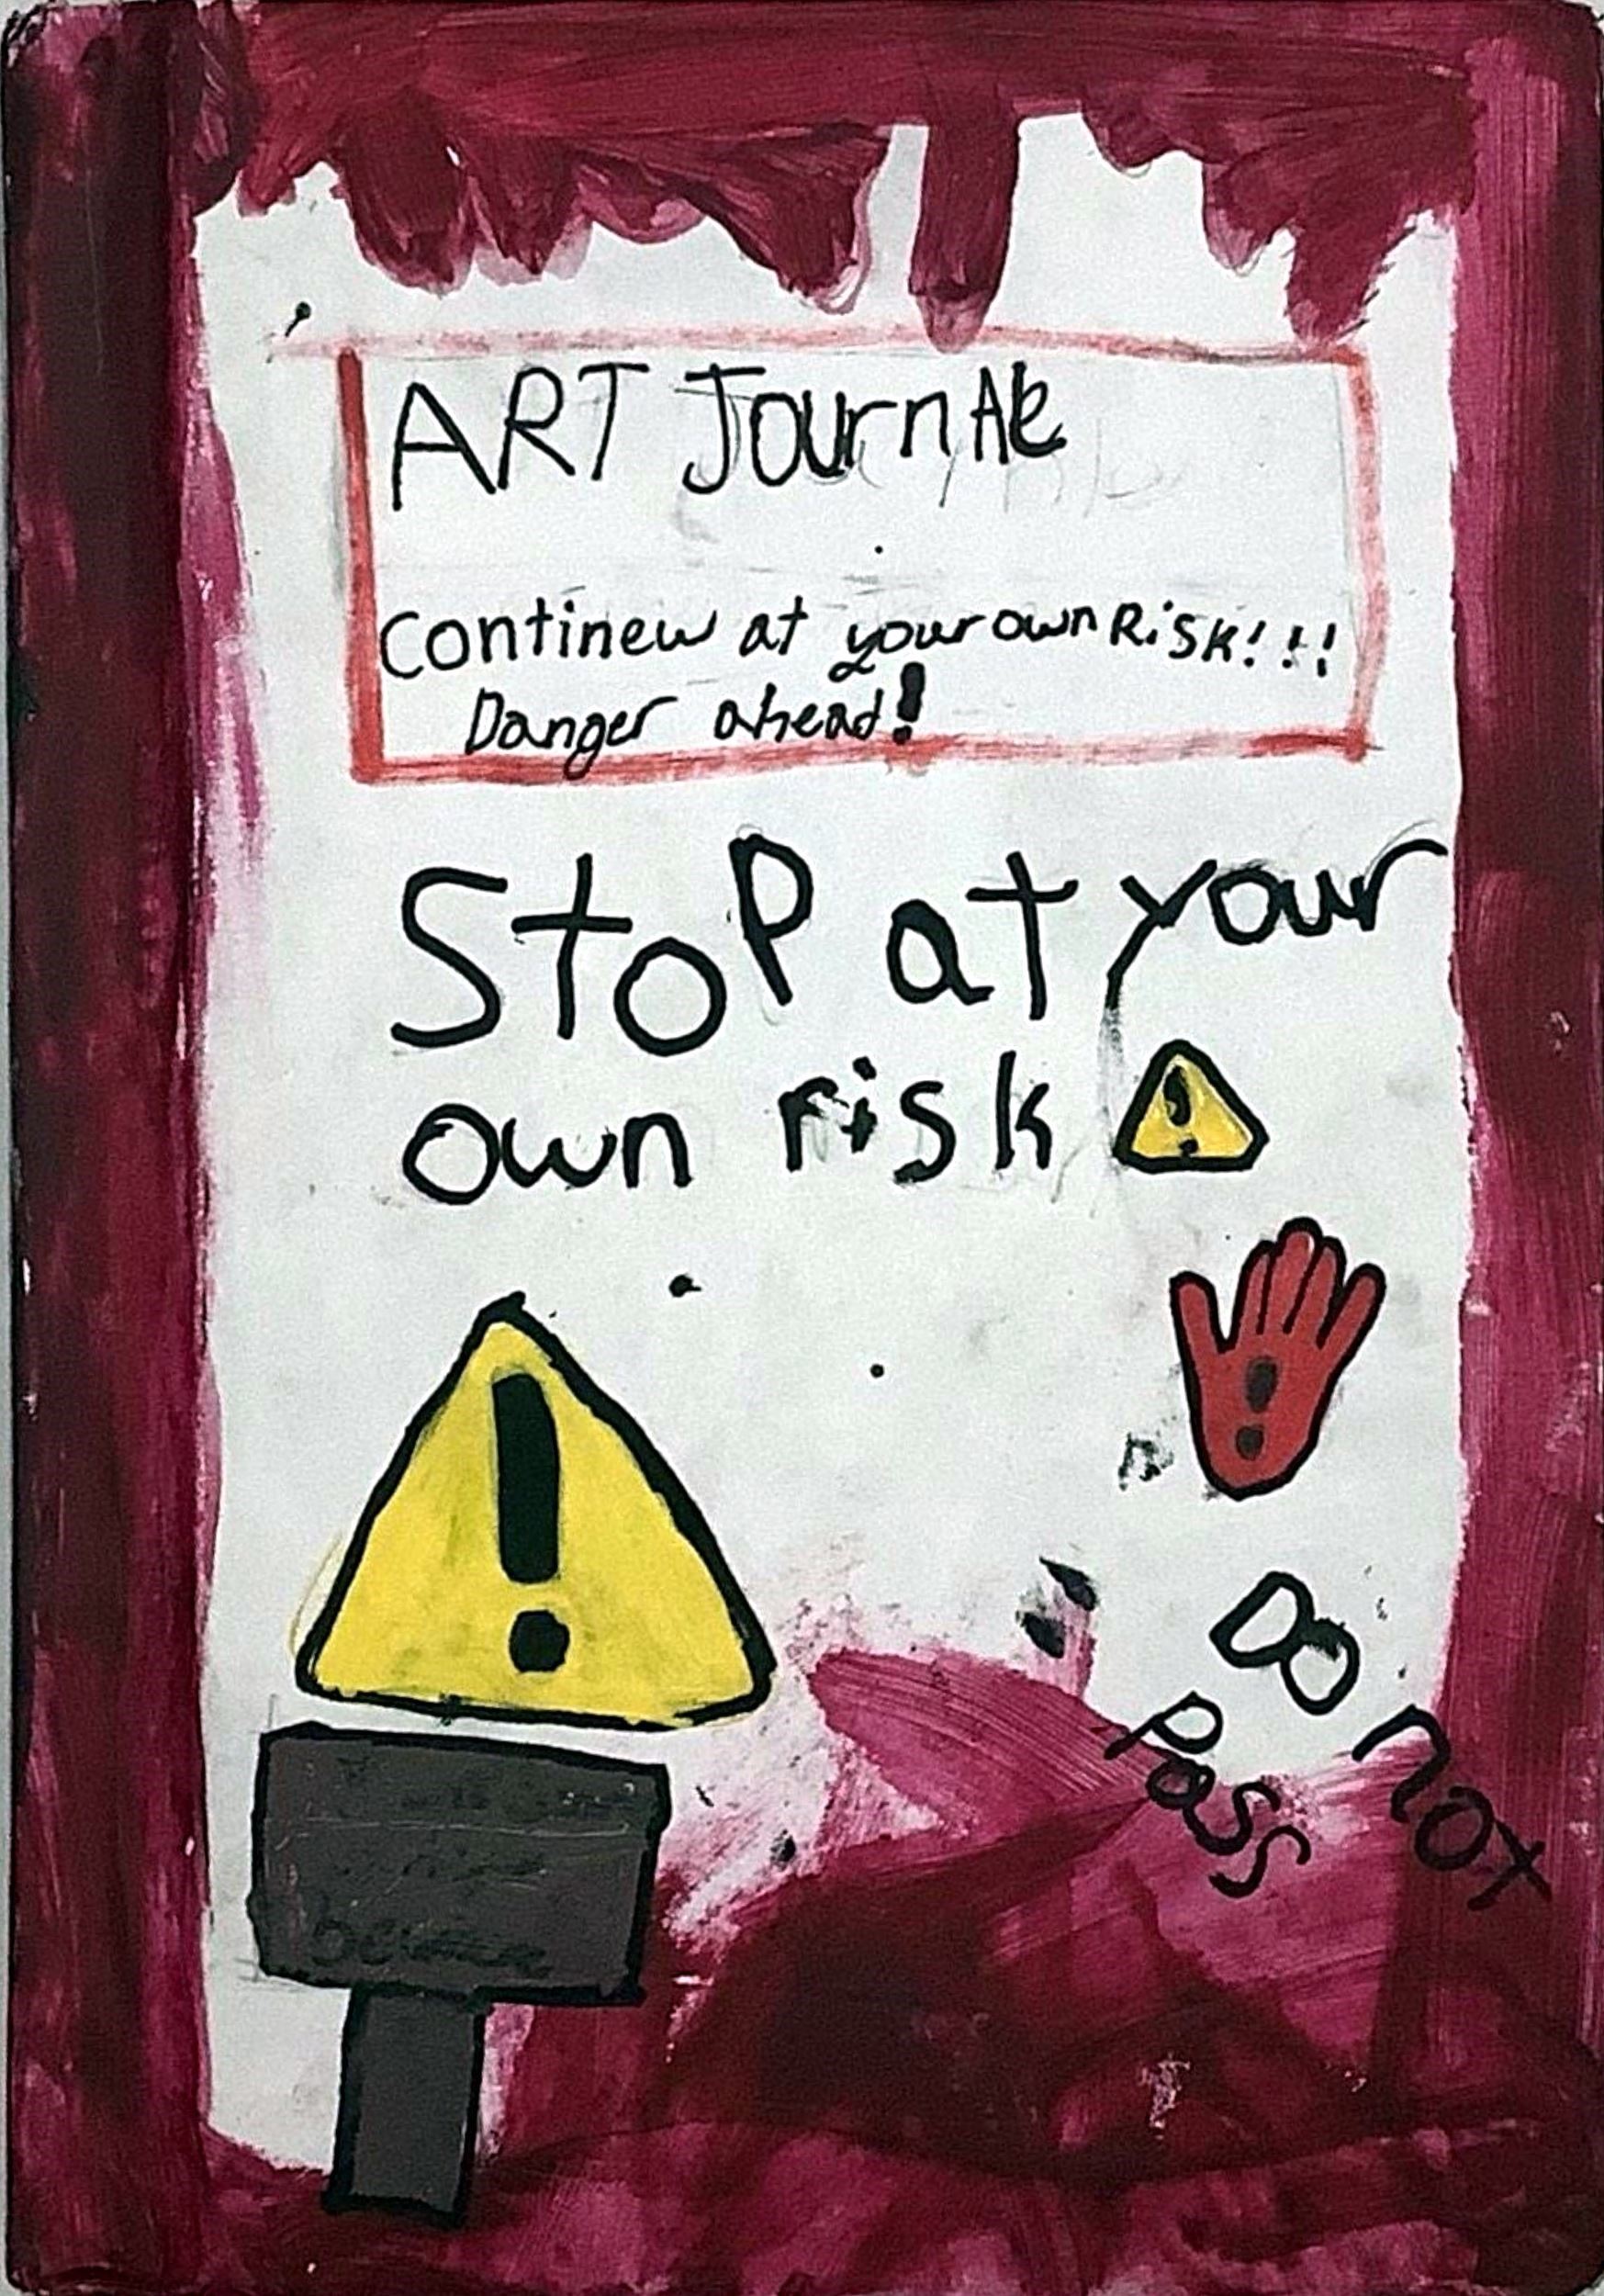 ART JournAl
Continew at your own Risk!!!
Danger ahead!
Stop at your
own risk
Do not
pass